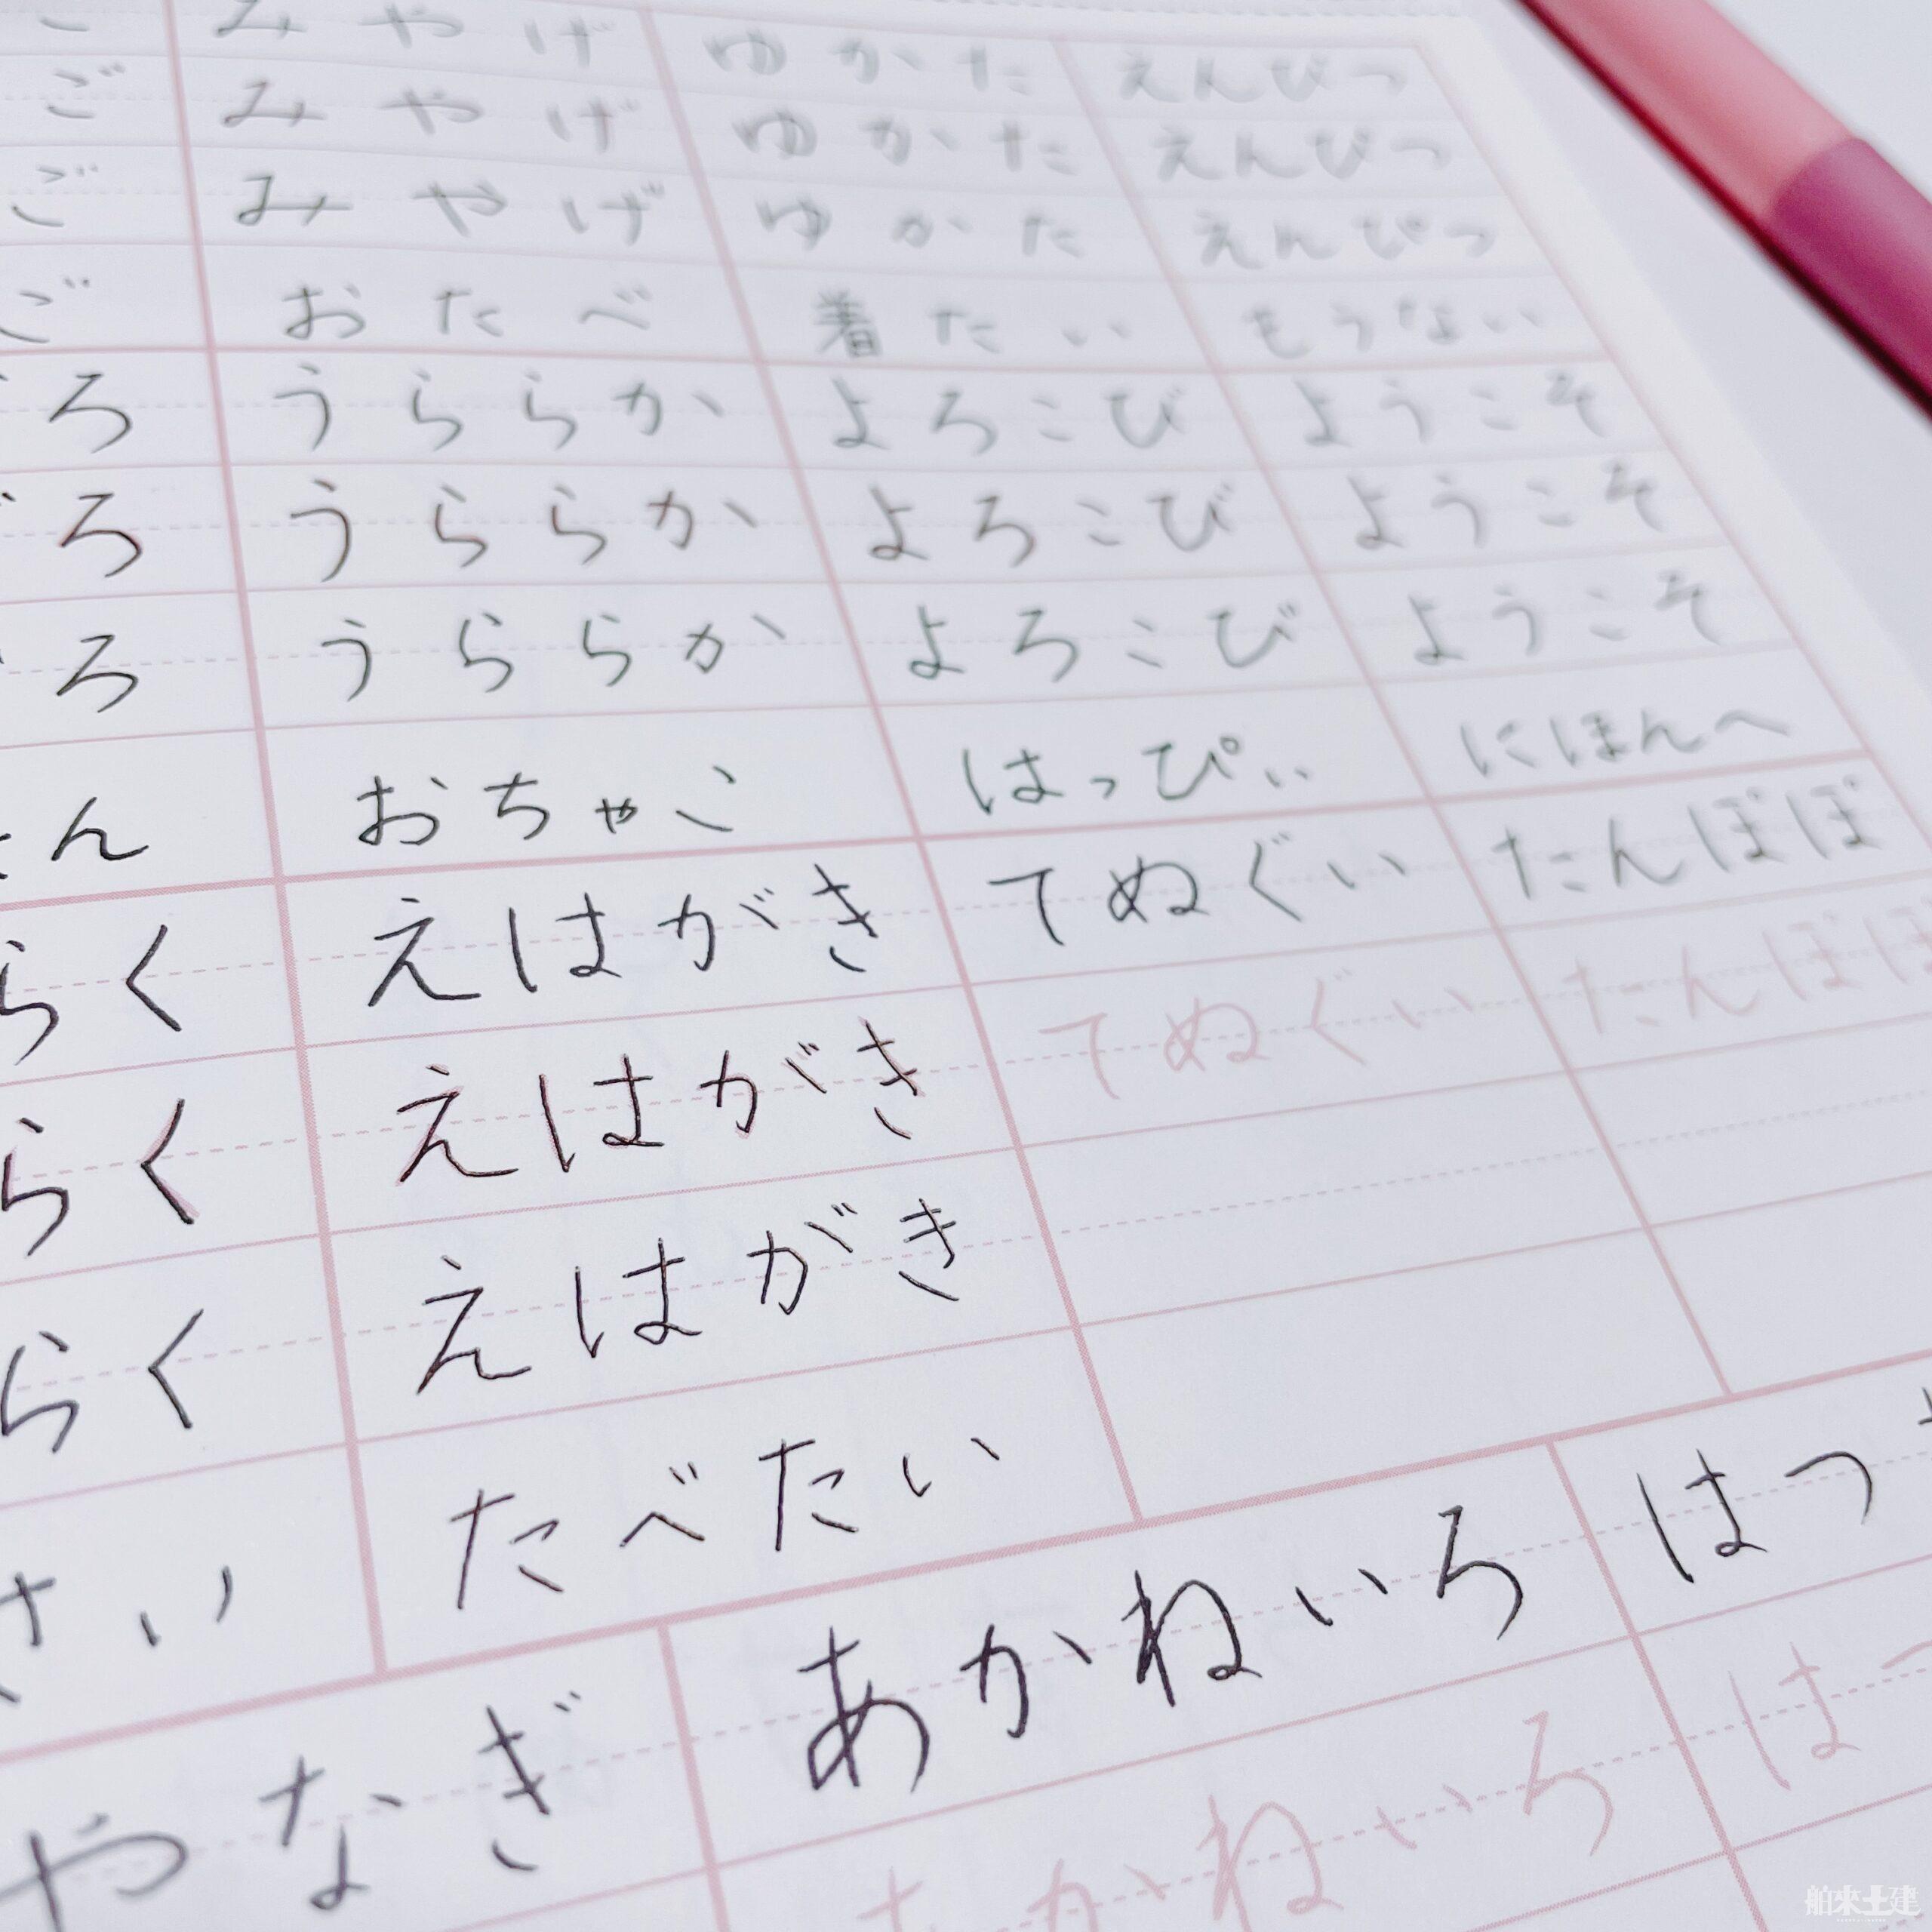 みやげ ゆかた えんぴつ
ご みやげ ゆかた えんぴつ
ご みやげ ゆかた えんぴつ
ご おたべ 着たい もうない
ろ うららか よろこび ようこそ
ろ うららか よろこび ようこそ
ろ うららか よろこび ようこそ
ん おちゃこ はっぴぃ にほんへ
らく えはがき てぬぐい たんぽぽ
らく えはがき てぬぐい たんぽぽ
らく えはがき
い たべたい
やなぎ あかねいろ はつ
あかねいろ はつ
舶来土建